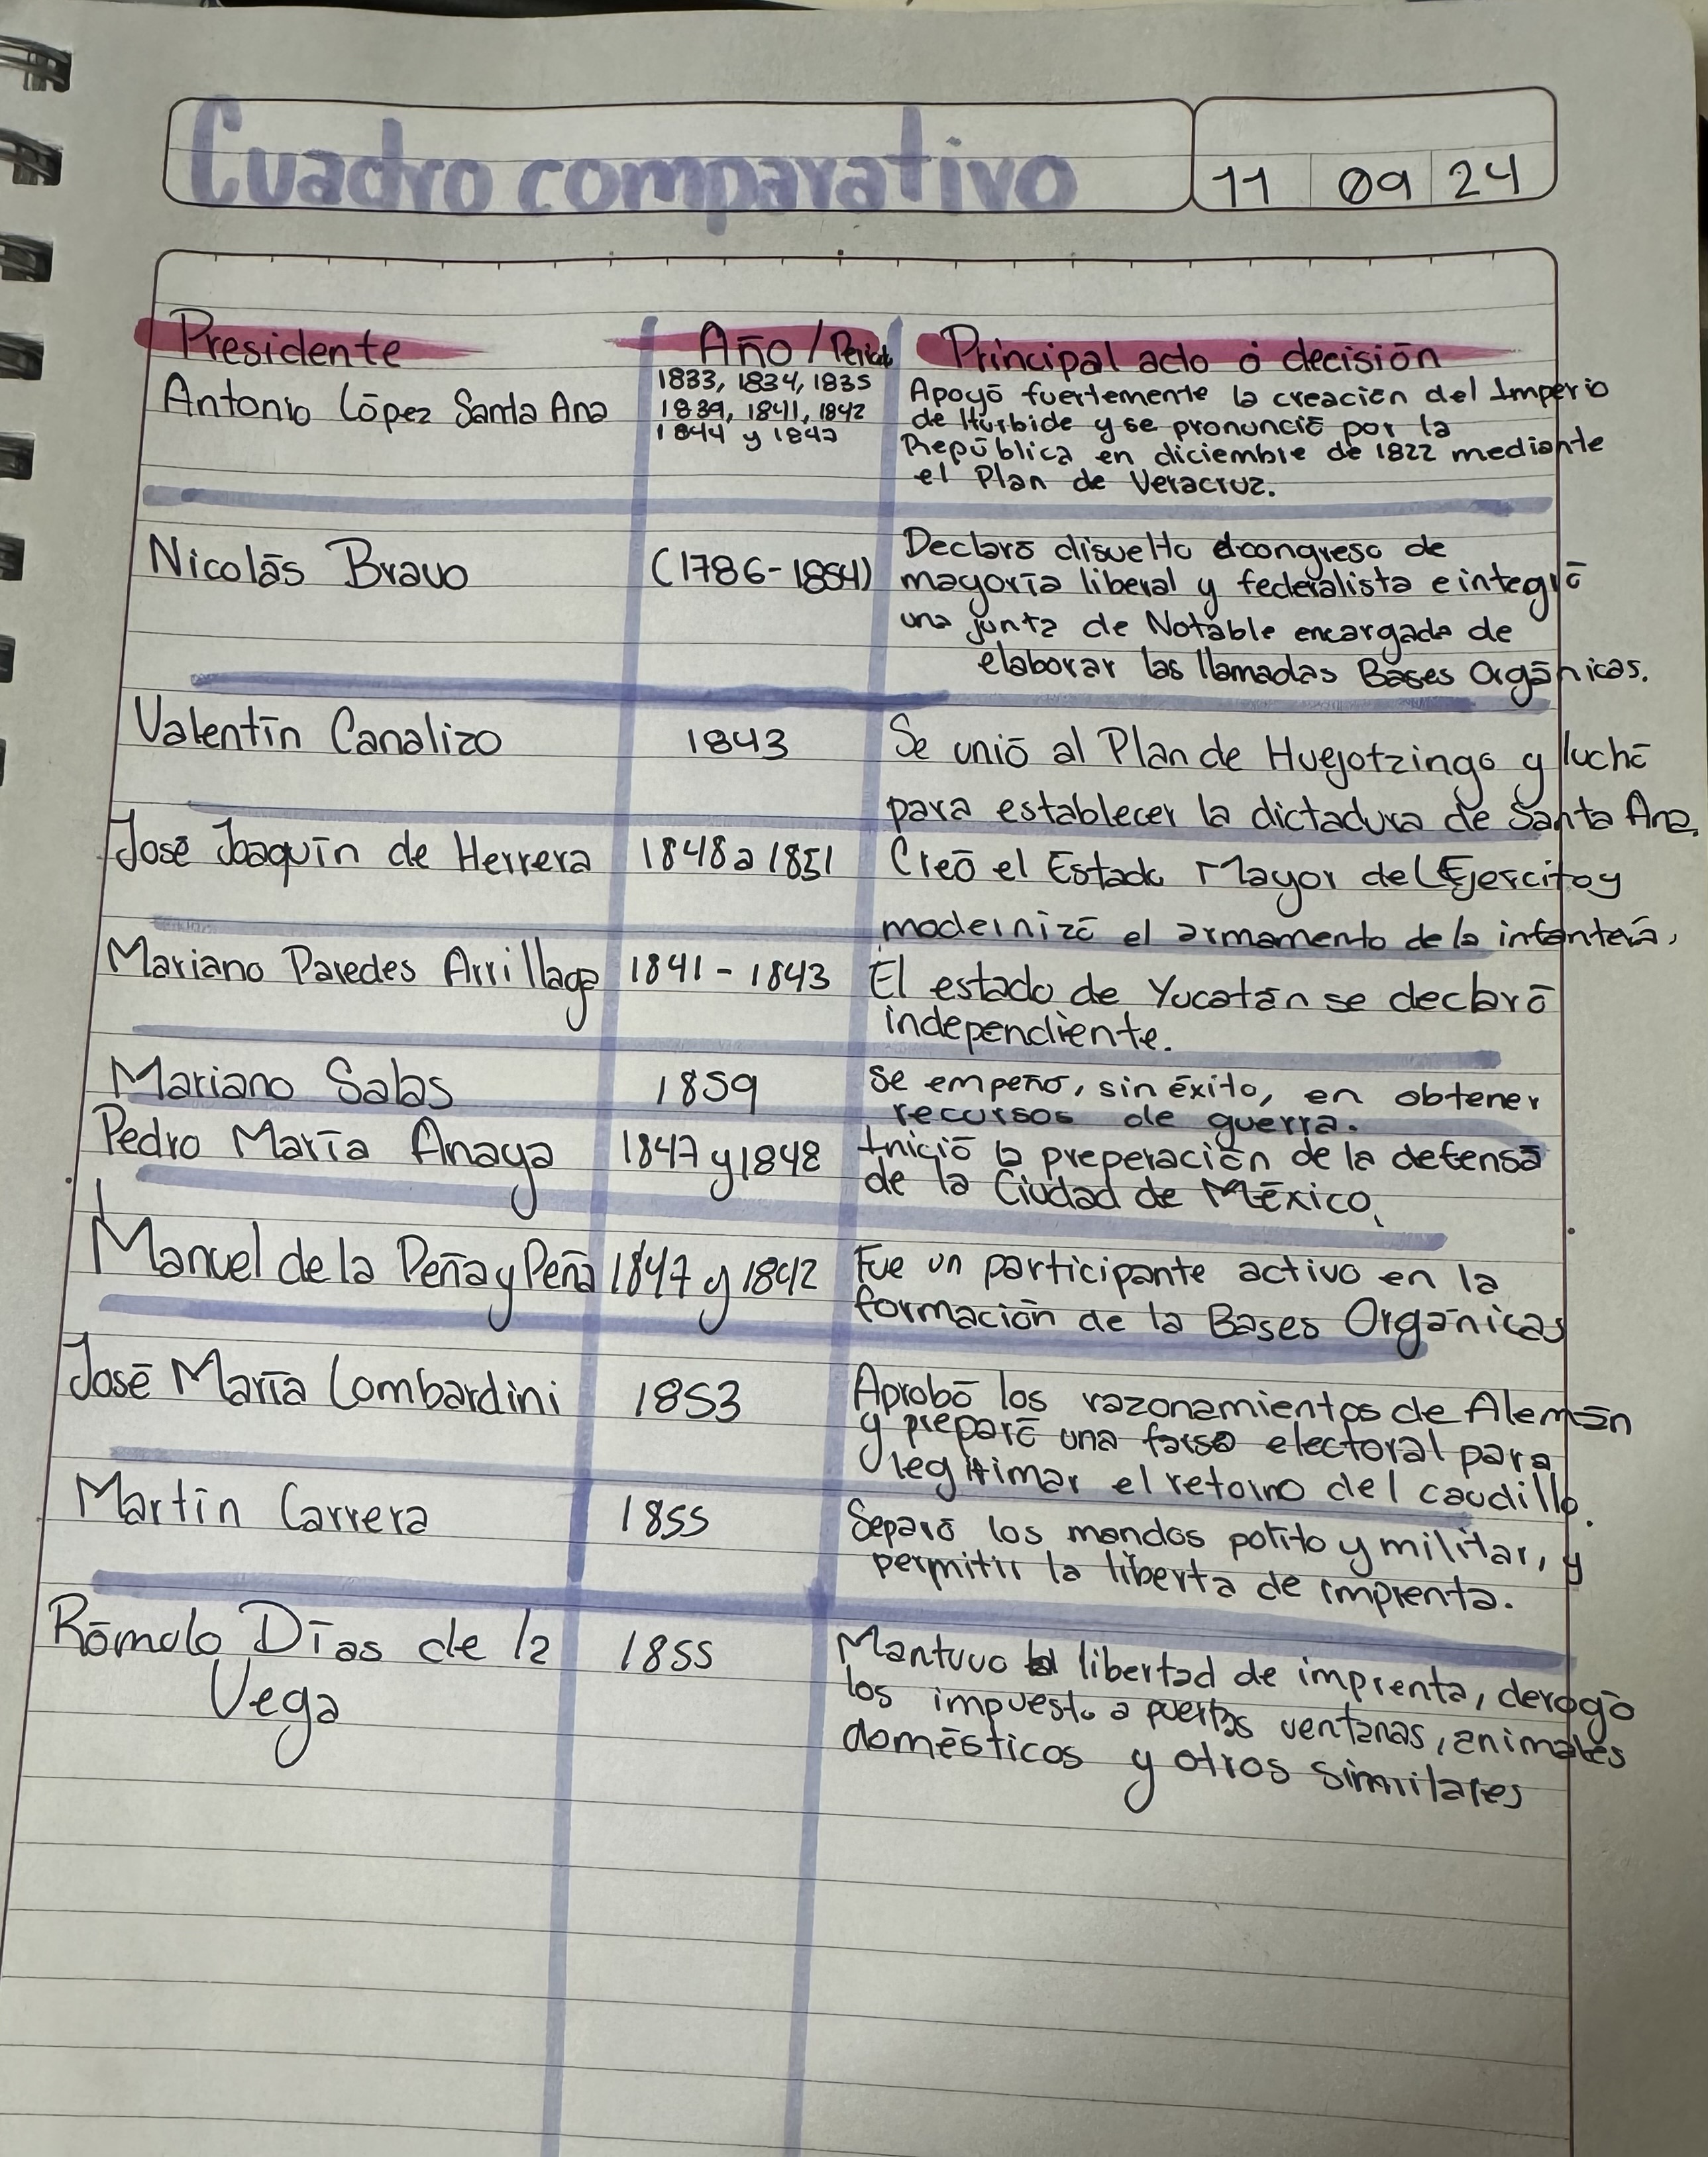 Cuadro comparativo
11 09 24
Presidente Año/Period Principal acto ó decisión
Antonio López Santa Ana
1833, 1834, 1835
1839, 1841, 1842
1844 y 1847
Apoyó fuertemente la creación del Imperio
de Iturbide y se pronunció por la
República en diciembre de 1822 mediante
el Plan de Veracruz.
Nicolás Bravo (1786-1854)
Declaró disuelto el congreso de
mayoría liberal y federalista e integró
una junta de Notable encargada de
elaborar las llamadas Bases Orgánicas.
Valentín Canalizo 1843
Se unió al Plan de Huejotzingo y luchó
para establecer la dictadura de Santa Ana.
José Joaquín de Herrera 1848 a 1851
Creó el Estado Mayor del Ejercito y
modernizó el armamento de la infantería,
Mariano Paredes Arrillaga 1841-1843
El estado de Yucatán se declaró
independiente.
Mariano Salas 1859
Se empeño, sin éxito, en obtener
recursos de guerra.
Pedro María Anaya 1847 y 1848
Inició la preperación de la defensa
de la Ciudad de México,
Manuel de la Peña y Peña 1847 y 1842
Fue un participante activo en la
formación de la Bases Orgánicas
José María Lombardini 1853
Aprobó los razonamientos de Alemán
y preparó una farsa electoral para
legitimar el retorno del caudillo.
Martín Carrera 1855
Separó los mandos polito y militar, y
permitir la liberta de imprenta.
Rómulo Días de la
Vega
1855
Mantuvo la libertad de imprenta, derogó
los impuesto a puertas ventanas, animales
domésticos y otros similares